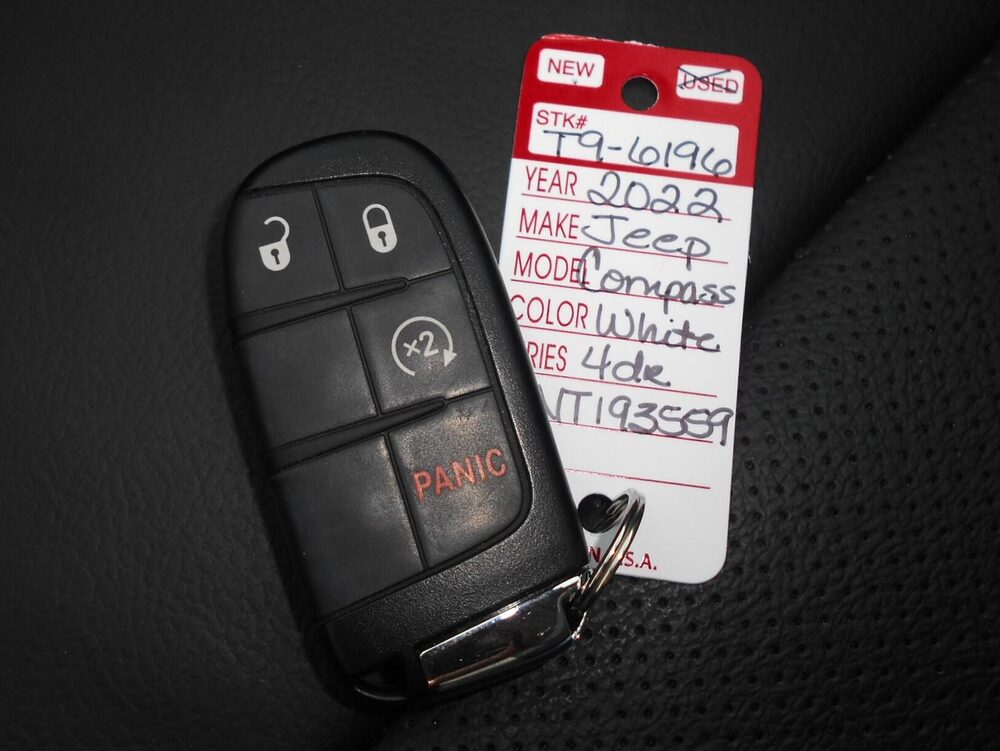 NEW USED
STK#
T9-6196
YEAR 2022
MAKE Jeep
MODE Compass
COLOR White
RIES 4dr
NT193559
x2
PANIC
S.A.